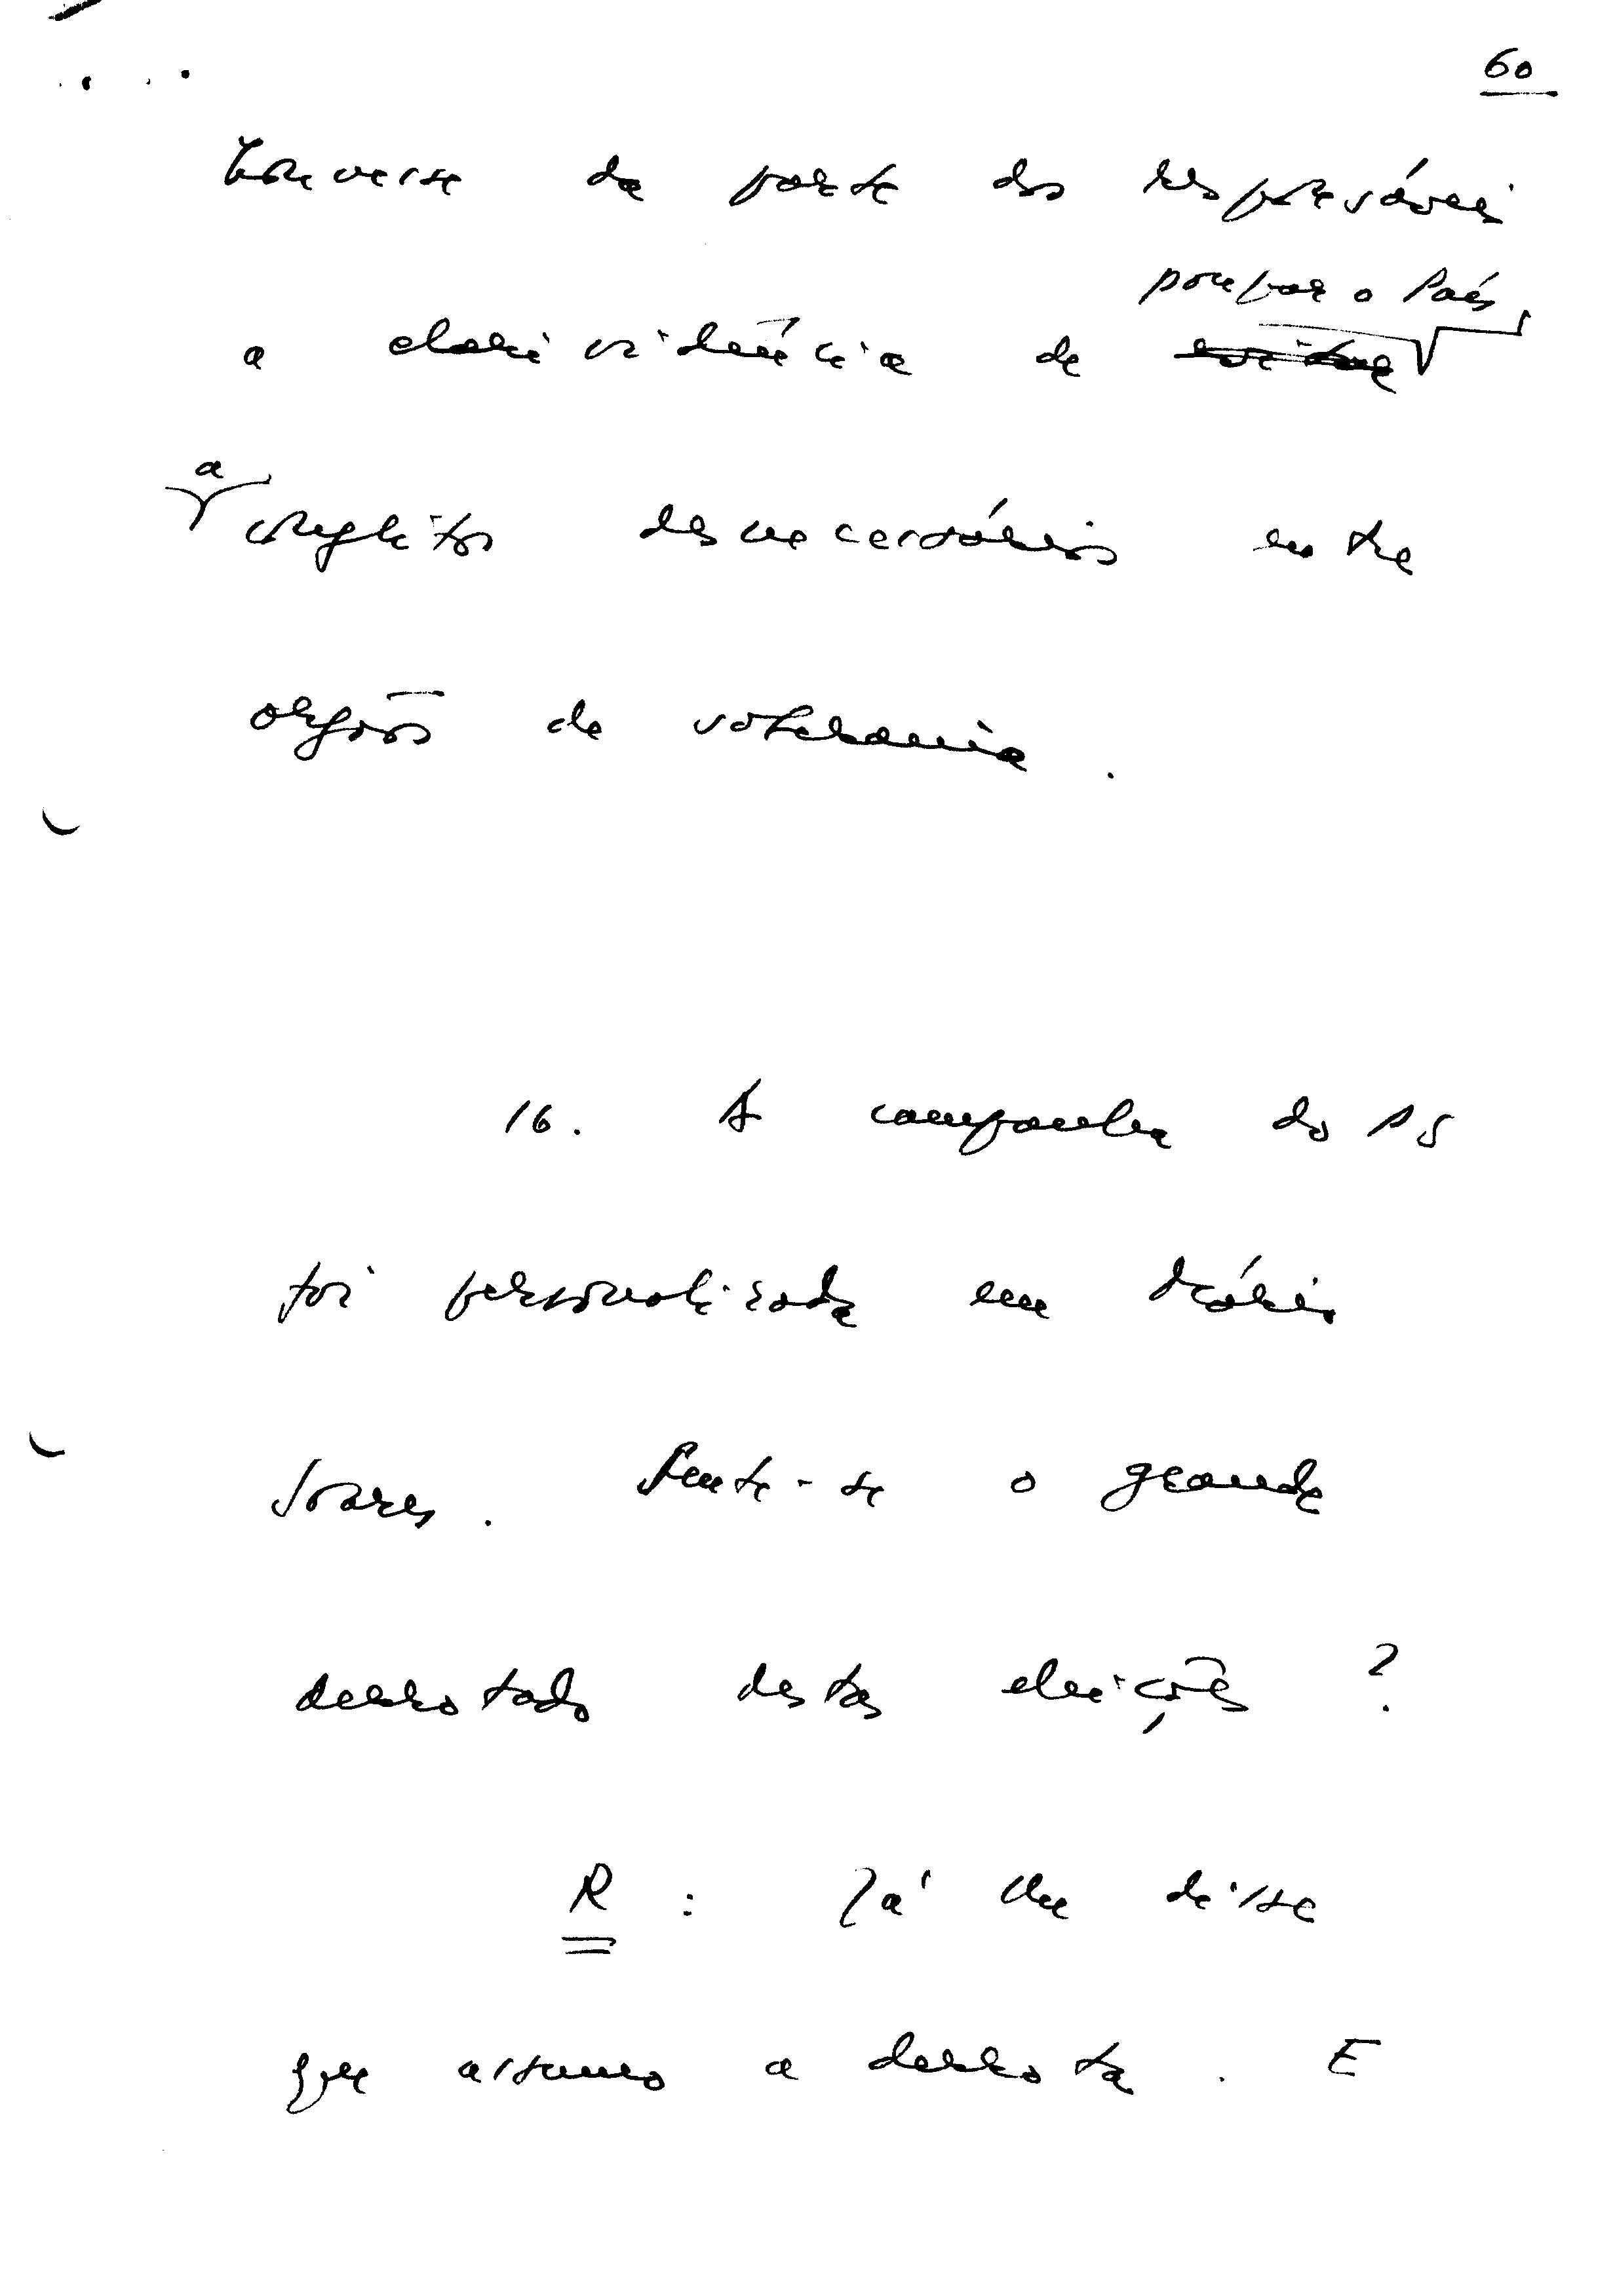 60
houvesse da parte dos responsáveis
poupar o País
a clarividência de evitar
a
conflitos desnecessários entre
orgãos de soberania.
16. A campanha do PS
foi personalizada em Mário
Soares. Sente-se o grande
derrotado destas eleições?
R: Já lhe disse
que assumo a derrota. E